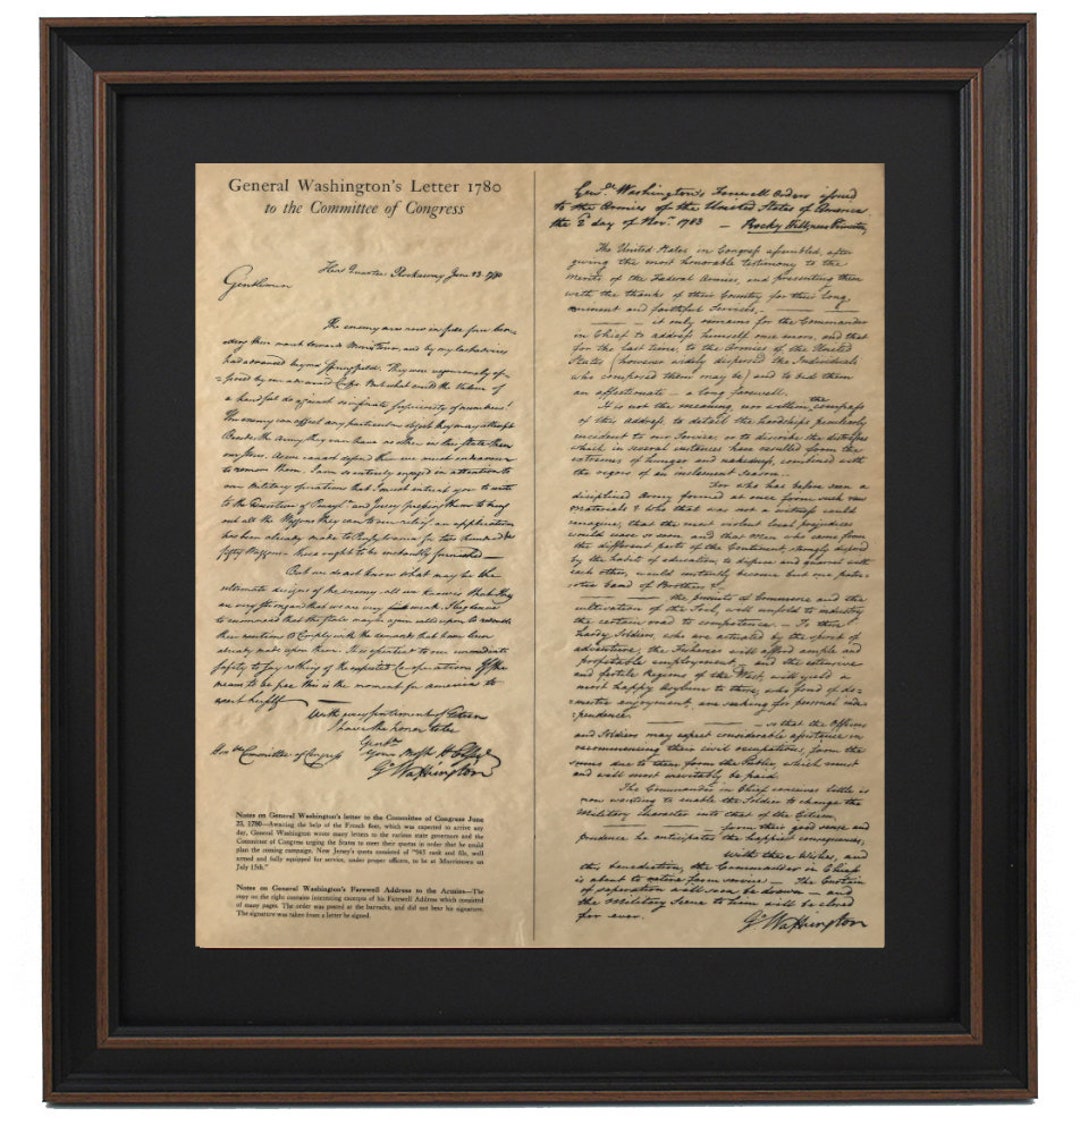 General Washington's Letter 1780
to the Committee of Congress
Head Quarters Rockaway June 23. 1780
Gentlemen
The enemy are now in full force
their march toward Morris town, and by my last advices
had advanced beyond Springfield. They were vigorously op-
posed by our advanced Corps. But what could the Valour of
a handful do against so infinite superiority of numbers!
The enemy can effect any particular object they may attempt
Besides the army they can have no other in this State than
our Stores. As we cannot defend them we must endeavour
to remove them. I am so entirely engaged in attention to
our military operations that I must intreat you to write
to the Executives of Pensyla and Jersey pressing them to bring
out all the Waggons they can to our relief. an application
has been already made to Pensylvania for two hundred &
fifty Waggons - these ought to be instantly furnished —
But we do not know what may be the
ultimate designs of the enemy. all we know is that they
are very strong and that we are very weak. I beg leave
to recommend that the States may be again called upon to redouble
their exertions to Comply with the demands that have been
already made upon them. It is essential to our immediate
safety to say nothing of the expected Co-operations. If she
means to be free this is the moment for America to
exert herself —
With every sentiment of Esteem
I have the honor to be
Gentn
Your Most H Obed
Honble Committee of Congress
Go Washington
Notes on General Washington's letter to the Committee of Congress June
23, 1780—Awaiting the help of the French fleet, which was expected to arrive any
day, General Washington wrote many letters to the various state governors and the
Committee of Congress urging the States to meet their quotas in order that he could
plan the coming campaign. New Jersey's quota consisted of "945 rank and file, well
armed and fully equipped for service, under proper officers, to be at Morristown on
July 15th."
Notes on General Washington's Farewell Address to the Armies—The
copy on the right contains interesting excerpts of his Farewell Address which consisted
of many pages. The order was posted at the barracks, and did not bear his signature.
The signature was taken from a letter he signed.
Genl. Washington's Farewell Orders issued
to the Armies of the United States of America
the 2d day of Novr. 1783 — Rocky Hill, near Princeton
The United States in Congress assembled, after
giving the most honorable testimony to the
merits of the Federal Armies, and presenting them
with the thanks of their Country for their long,
eminent and faithful Services, — —
— — it only remains for the Commander
in Chief to address himself once more, and that
for the last time, to the Armies of the United
States (however widely dispersed the Individuals
who composed them may be) and to bid them
an affectionate — a long farewell.
It is not the meaning, nor within the compass
of this address, to detail the hardships peculiarly
incident to our Service, or to describe the distresses
which in several instances have resulted from the
extremes of hunger and nakedness, combined with
the rigors of an inclement season. —
For who has before seen a
disciplined Army formed at once from such raw
Materials? Who that was not a witness could
imagine, that the most violent local prejudices
would cease so soon, and that Men who came from
the different parts of the Continent, strongly disposed
by the habit of education, to dispise and quarrel with
each other, would instantly become but one patri-
otic band of Brothers?
— — the pursuits of Commerce and the
cultivation of the Soil, will unfold to industry
the certain road to competence. — To those
hardy Soldiers, who are actuated by the spirit of
adventure, the Fisheries will afford ample and
profitable employment, — and the extensive
and fertile Regions of the West, will yield a
most happy Asylum to those, who fond of do-
mestic enjoyment, are seeking for personal inde-
pendence.
— — so that the Officers
and Soldiers may expect considerable assistance in
recommencing their civil occupations, from the
sums due to them from the Public, which must
and will most inevitably be paid.
The Commander in Chief conceives little is
now wanting to enable the Soldier to change the
Military Character into that of the Citizen,
— — from their good sense and
prudence he anticipates the happiest consequences,
With these Wishes, and
this benediction, the Commander in Chief
is about to retire from service — The Curtain
of separation will soon be drawn — and
the Military Scene to him will be closed
for ever.
Go Washington